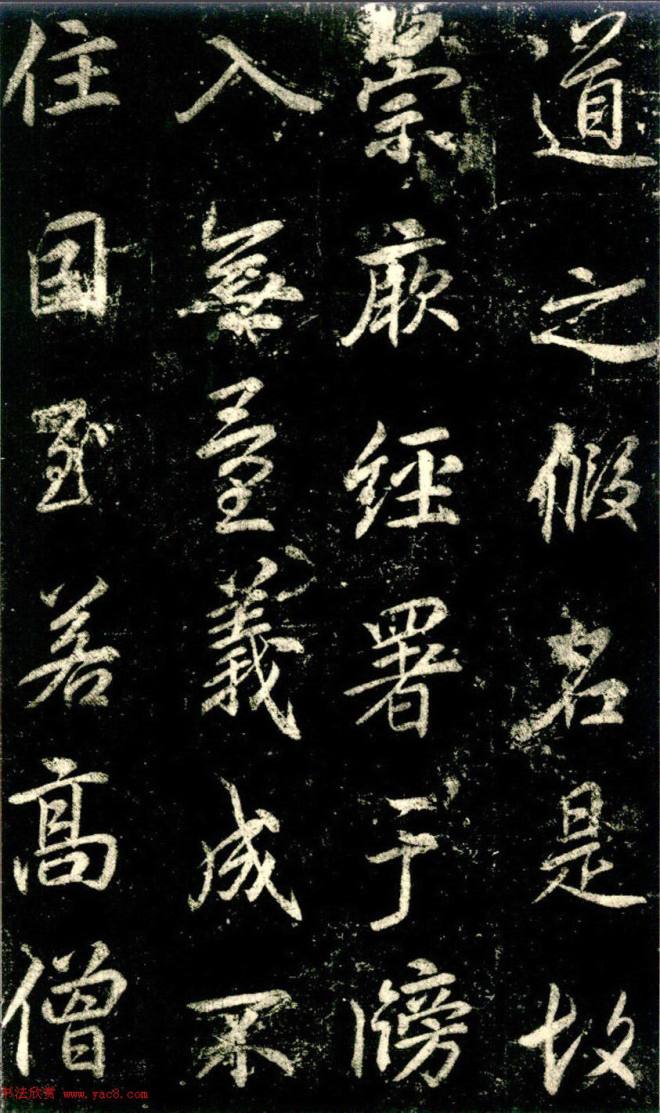 道之假名是故
崇厥經署于牓
入無量義成不
住因至若高僧
书法欣赏 www.yac8.com